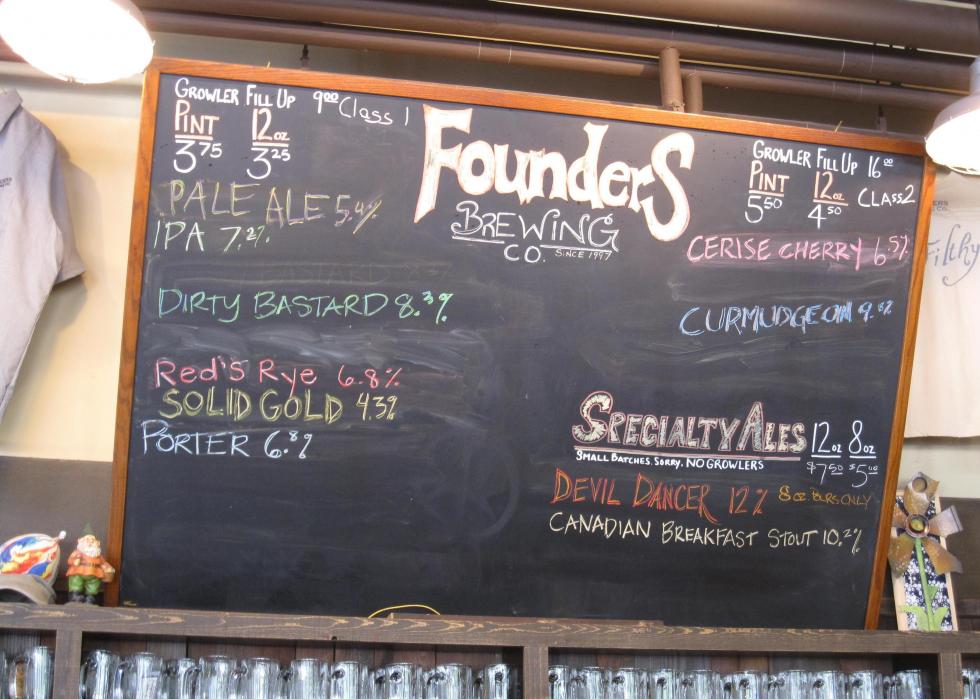 GROWLER FILL UP 9.00 Class 1
PINT 12oz
3.75 3.25
PALE ALE 5.4%
IPA 7.2%
DIRTY BASTARD 8.3%
Red's Rye 6.8%
SOLID GOLD 4.3%
PORTER 6.8%
FounderS
BREWING
CO. SINCE 1997
GROWLER FILL UP 16.00
PINT 12oz CLASS 2
5.50 4.50
CERISE CHERRY 6.5%
CURMUDGEON 9.8%
SPECIALTY ALES 12oz 8oz
SMALL BATCHES. SORRY. NO GROWLERS $7.50 $5.00
DEVIL DANCER 12% 8oz. POURS ONLY
CANADIAN BREAKFAST STOUT 10.2%
Filthy